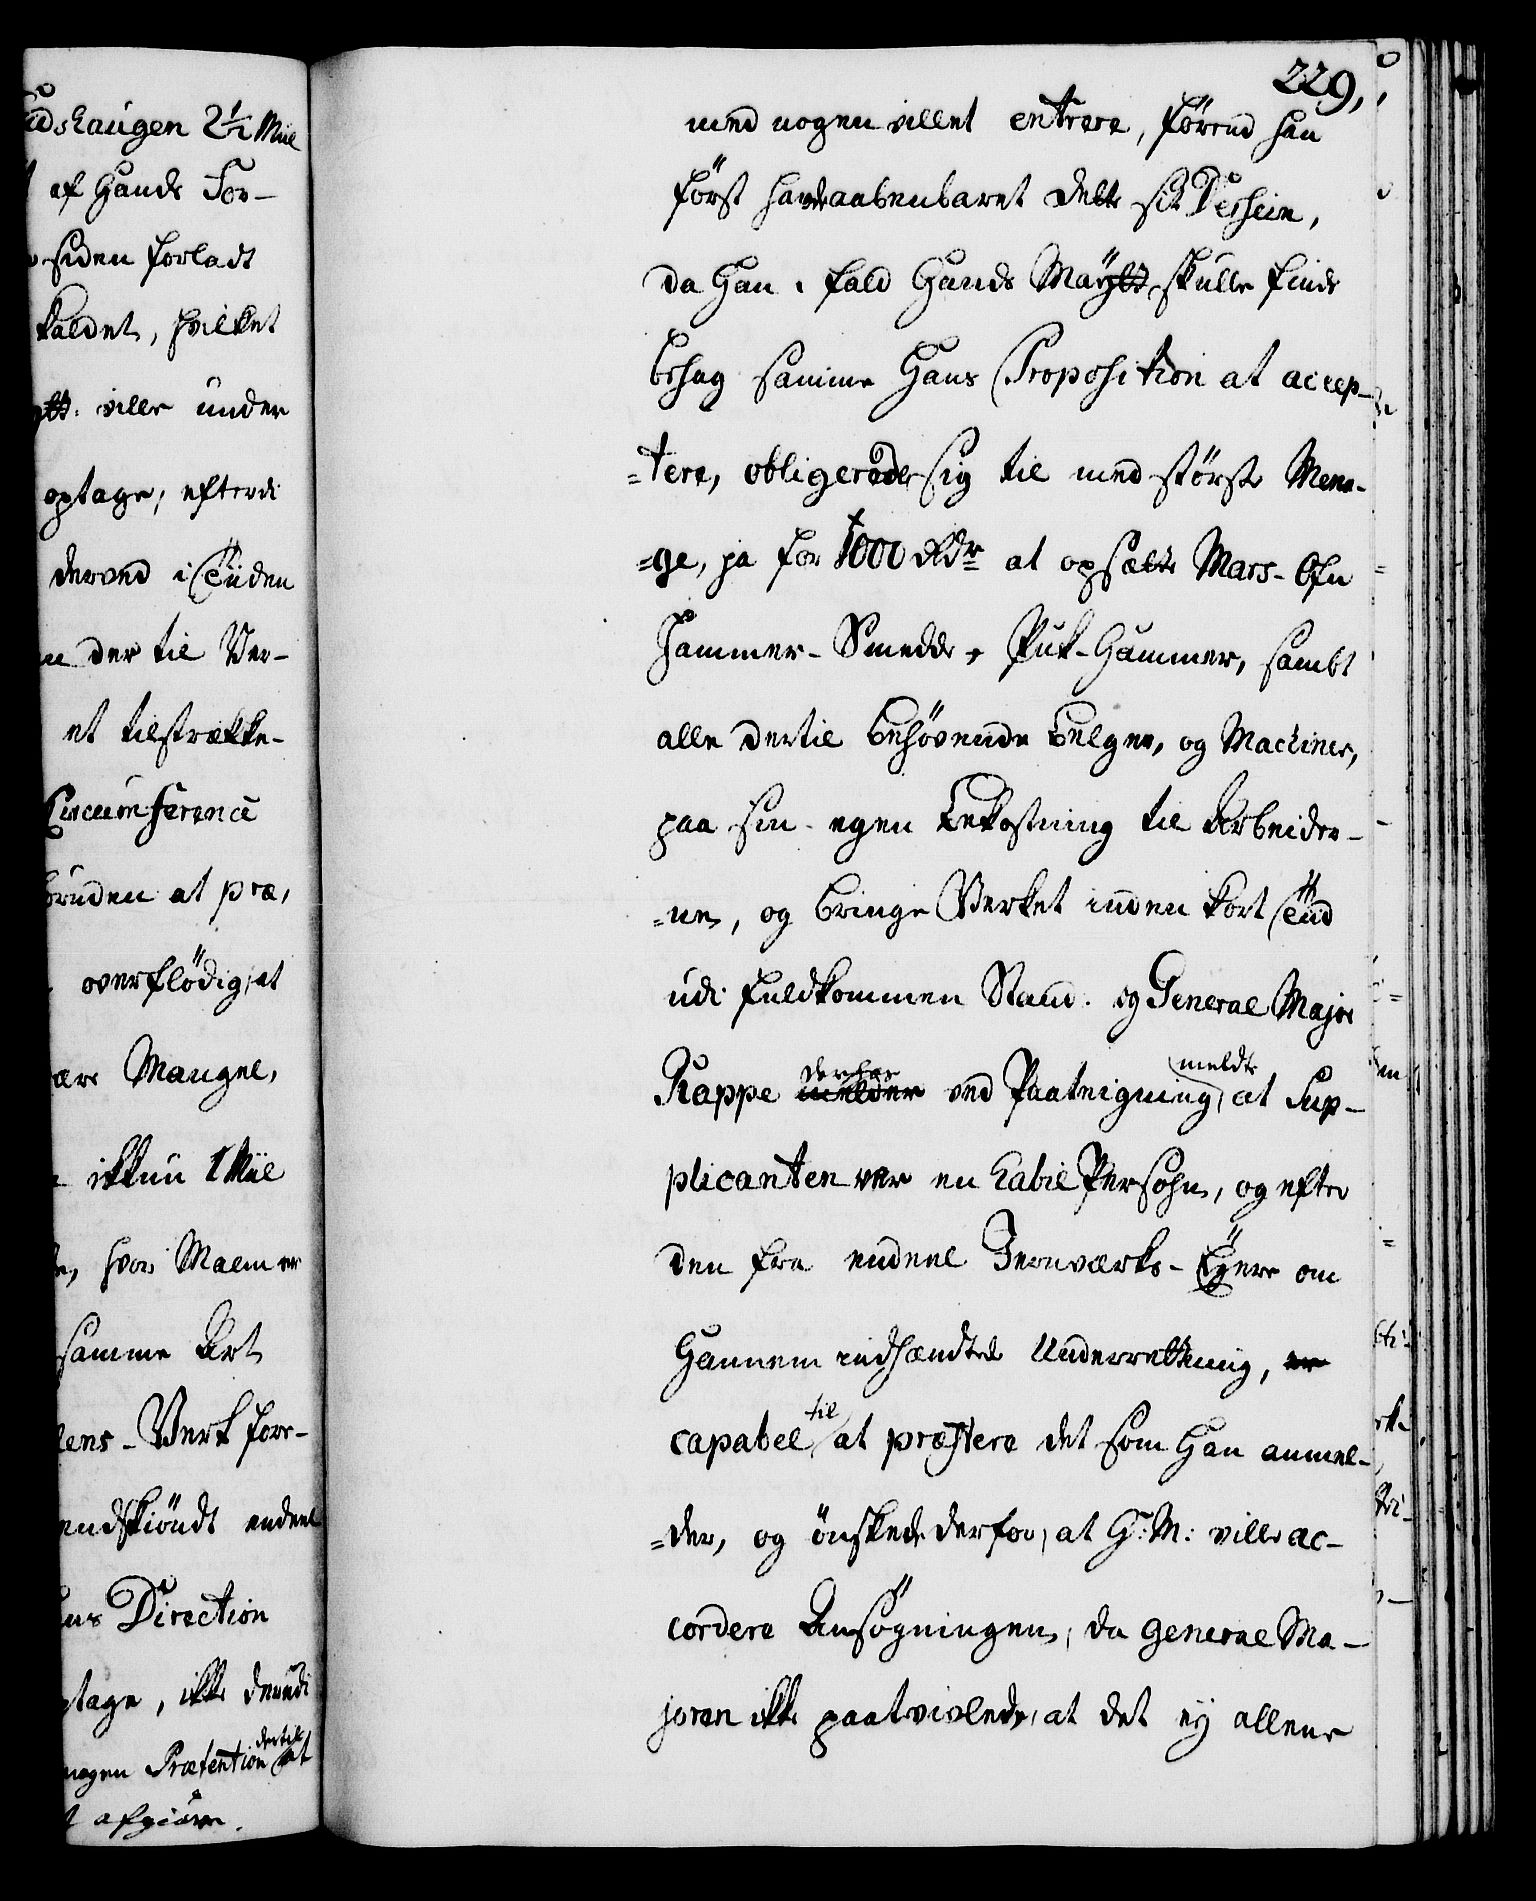 udshaugen 2½ Miil
af Hands For-
siden forladt
kaldet, hvilket
ville under
optage, efterdi
derved i Tiiden
der til Ver-
et tilstrække-
Circumference
bruden at præ,
overflödig, at
ære Mangel,
ikkun 1 Miil
hvor Malm er
samme Art
lens-Verk fore-
endskiöndt endeel
ens Direction
tage, ikke derudi
nogen Prætention dertil at
afgiöre.
229,
med nogen villet entrere, förend han
först havde aabenbaret dette sit Dessein,
da Han i fald Hands Maÿtt skulle finde
behag samme Hans Proposition at accep-
=tere, obligerede sig til med störste Mena-
=ge, ja for 1000 Rdr at opsætte Mars-Ofn
Hammer-Smedde, Puk-Hammer, sambt
alle dertil behövende Belger, og Machiner,
paa sin egen Bekostning til Arbeider-
=ne, og bringe Verket inden kort Tiid
udi fuldkommen Stand. og General Major
Rappe melder derhos ved Paateigning meldte, at Sup-
plicanten var en habil Persohn, og efter
den fra endeel Jernværks-Eÿere om
Hannem indhændtede Underretning, er
capabel til at præstere det som Han anmel-
=der, og önskede derfor, at G: M: ville ac-
cordere Ansögningen, da General Ma-
joren ikke paatvivlede, at det ey allene